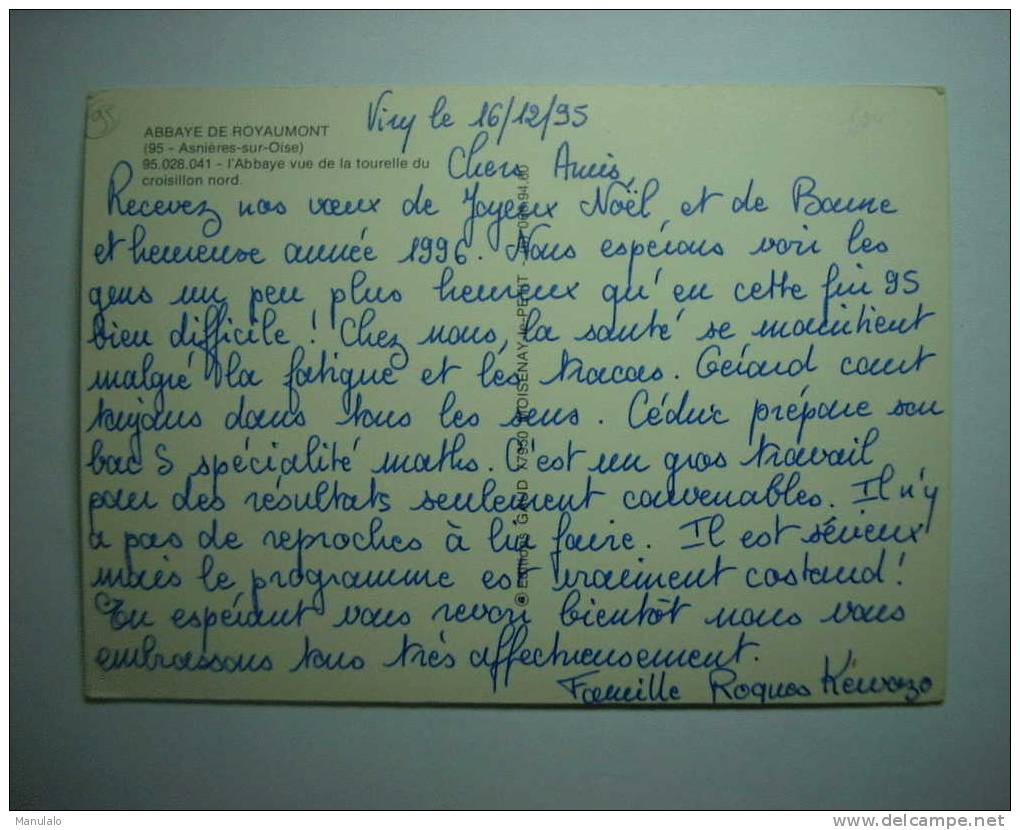 Viry le 16/12/95
ABBAYE DE ROYAUMONT
(95 - Asnières-sur-Oise)
95.028.041 - l'Abbaye vue de la tourelle du
croisillon nord.
Chers Amis,
Recevez nos vœux de Joyeux Noël et de Bonne
et heureuse année 1996. Nous espérons voir les
gens un peu plus heureux qu'en cette fin 95
bien difficile ! Chez nous, la santé se maintient
malgré la fatigue et les tracas. Gérard court
toujours dans tous les sens. Cédric prépare son
bac S spécialité maths. C'est un gros travail
pour des résultats seulement convenables. Il n'y
a pas de reproches à lui faire. Il est sérieux
mais le programme est vraiment costaud !
En espérant vous revoir bientôt nous vous
embrassons tous très affectueusement.
Famille Roques
© Editions GAUD 77950 MOISENAY-le-PETIT
95
Manulalo
www.delcampe.net